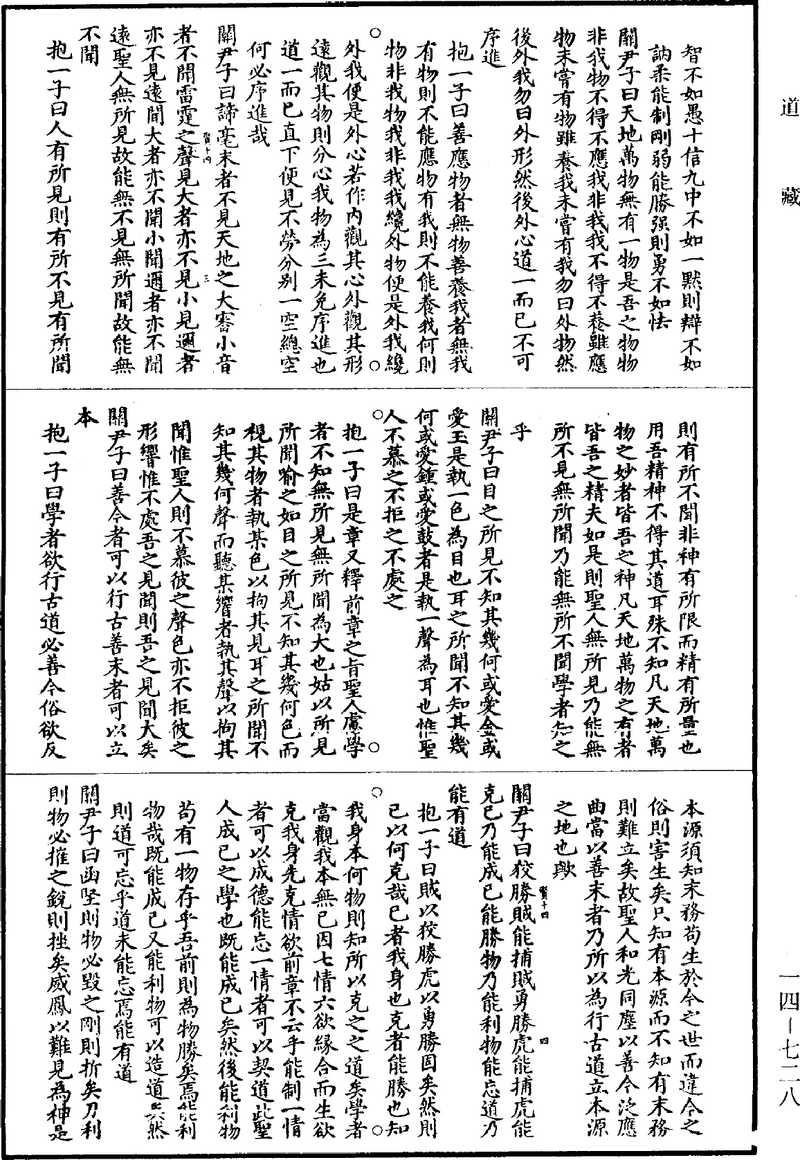 道藏
智不如愚十信九中不如一默則辯不如
訥柔能制剛弱能勝强則勇不如怯
關尹子曰天地萬物無有一物是吾之物物
非我物不得不應我非我我不得不養雖應
物未嘗有物雖養我未嘗有我勿曰外物然
後外我勿曰外形然後外心道一而已不可
序進
抱一子曰善應物者無物善養我者無我
有物則不能應物有我則不能養我何則
物非我物我非我我纔外物便是外我纔
外我便是外心若作內觀其心外觀其形
遠觀其物則分心我物為三未免序進也
道一而已直下便見不勞分别一空總空
何必序進哉
關尹子曰諦毫末者不見天地之大審小音
者不聞雷霆之聲見大者亦不見小見邇者
賢十四 三
亦不見遠聞大者亦不聞小聞邇者亦不聞
遠聖人無所見故能無不見無所聞故能無
不聞
抱一子曰人有所見則有所不見有所聞
則有所不聞非神有所限而精有所量也
用吾精神不得其道耳殊不知凡天地萬
物之妙者皆吾之神凡天地萬物之有者
皆吾之精夫如是則聖人無所見乃能無
所不見無所聞乃能無所不聞學者知之
乎
關尹子曰目之所見不知其幾何或愛金或
愛玉是執一色為目也耳之所聞不知其幾
何或愛鍾或愛鼓者是執一聲為耳也惟聖
人不慕之不拒之不處之
抱一子曰是章又釋前章之旨聖人慮學
者不知無所見無所聞為大也姑以所見
所聞喻之如目之所見不知其幾何色而
視其物者執某色以拘其見耳之所聞不
知其幾何聲而聽某響者執其聲以拘其
聞惟聖人則不慕彼之聲色亦不拒彼之
形響惟不處吾之見聞則吾之見聞大矣
關尹子曰善今者可以行古善末者可以立
本
抱一子曰學者欲行古道必善今俗欲反
本源須知末務苟生於今之世而違今之
俗則害生矣只知有本源而不知有末務
則難立矣故聖人和光同塵以善今泛應
曲當以善末者乃所以為行古道立本源
之地也歟
賢十四 四
關尹子曰狡勝賊能捕賊勇勝虎能捕虎能
克己乃能成己能勝物乃能利物能忘道乃
能有道
抱一子曰賊以狡勝虎以勇勝固矣然則
己以何克哉己者我身也克者能勝也知
我身本何物則知所以克之之道矣學者
當觀我本無己因七情六欲緣合而生欲
克我身先克情欲前章不云乎能制一情
者可以成德能忘一情者可以契道此聖
人成己之學也既能成己矣然後能利物
苟有一物存乎吾前則為物勝矣焉能利
物哉既能成己又能利物可以造道矣然
則道可忘乎道未能忘焉能有道
關尹子曰函堅則物必毀之剛則折矣刀利
則物必摧之銳則挫矣威鳳以難見為神是
一四－七二八